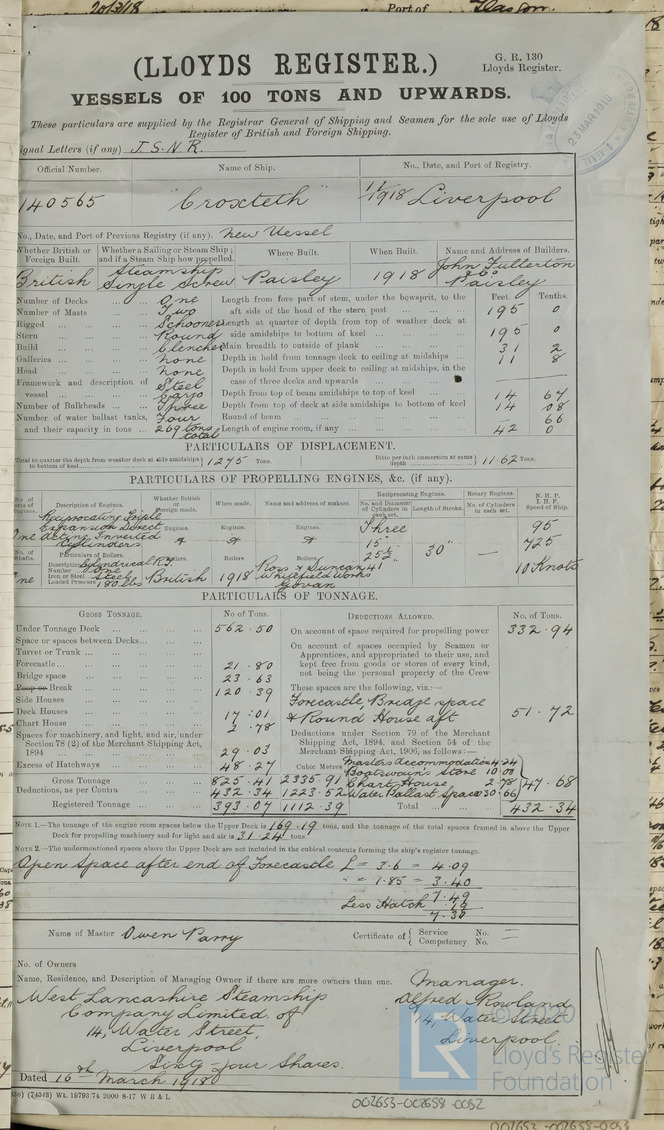 20/3/18 Port of Glasgow
(LLOYDS REGISTER.)
G. R. 130
Lloyds Register.
VESSELS OF 100 TONS AND UPWARDS.
23 MAR 1918
These particulars are supplied by the Registrar General of Shipping and Seamen for the sole use of Lloyds
Register of British and Foreign Shipping.
ignal Letters (if any) J.S.N.R.
Official Number. Name of Ship. No., Date, and Port of Registry.
140565 "Croxteth" 11/1918 Liverpool
No., Date, and Port of Previous Registry (if any). New Vessel
Whether British or Foreign Built. Whether a Sailing or Steam Ship; and if a Steam Ship how propelled. Where Built. When Built. Name and Address of Builders.
British Steamship Single Screw Paisley 1918 John Fullerton & Co Paisley
Number of Decks One
Number of Masts Two
Rigged Schooner
Stern Round
Build Clencher
Galleries None
Head None
Framework and description of vessel Steel Cargo
Number of Bulkheads Three
Number of water ballast tanks, and their capacity in tons Four 269 tons total
Feet. Tenths.
Length from fore part of stem, under the bowsprit, to the aft side of the head of the stern post 195 0
Length at quarter of depth from top of weather deck at side amidships to bottom of keel 195 0
Main breadth to outside of plank 31 2
Depth in hold from tonnage deck to ceiling at midships 11 8
Depth in hold from upper deck to ceiling at midships, in the case of three decks and upwards
Depth from top of beam amidships to top of keel 14 67
Depth from top of deck at side amidships to bottom of keel 14 08
Round of beam 66
Length of engine room, if any 42 0
PARTICULARS OF DISPLACEMENT.
Total to quarter the depth from weather deck at side amidships to bottom of keel 1275 Tons. Ditto per inch immersion at same depth 11.62 Tons.
PARTICULARS OF PROPELLING ENGINES, &c. (if any).
No. of sets of Engines. Description of Engines. Whether British or Foreign made. When made. Name and address of makers. Reciprocating Engines. No. and Diameter of Cylinders in each set. Length of Stroke. Rotary Engines. No. of Cylinders in each set. N. H. P. I. H. P. Speed of Ship.
One Reciprocating Triple Expansion Direct Acting Inverted Cylinders
Engines. Engines. Engines.
Three 15" 25½" 41 30" — 95 725 10 Knots
No. of Shafts. Particulars of Boilers. Boilers. Boilers Boilers.
One
Description Cylindrical R.T.
Number One
Iron or Steel Steel
Loaded Pressure 180 lbs
British 1918 Ross & Duncan Whitefield Works Govan
PARTICULARS OF TONNAGE.
GROSS TONNAGE. No of Tons.
Under Tonnage Deck 562.50
Space or spaces between Decks
Turret or Trunk
Forecastle 21.80
Bridge space 23.63
Poop or Break 120.39
Side Houses
Deck Houses 17.01
Chart House 2.78
Spaces for machinery, and light, and air, under Section 78 (2) of the Merchant Shipping Act, 1894 29.03
Excess of Hatchways 48.27 Cubic Metres
Gross Tonnage 825.41 2335.91
Deductions, as per Contra 432.34 1223.52
Registered Tonnage 393.07 1112.39
DEDUCTIONS ALLOWED. No. of Tons.
On account of space required for propelling power 332.94
On account of spaces occupied by Seamen or Apprentices, and appropriated to their use, and kept free from goods or stores of every kind, not being the personal property of the Crew
These spaces are the following, viz.:—
Forecastle, Bridge space & Round House aft 51.72
Deductions under Section 79 of the Merchant Shipping Act, 1894, and Section 54 of the Merchant Shipping Act, 1906, as follows:—
Masters Accommodation 4.24
Boatswain's Store 10.00
Chart House 2.78
Water Ballast Space 30.66
47.68
Total 432.34
NOTE 1.—The tonnage of the engine room spaces below the Upper Deck is 169.19 tons, and the tonnage of the total spaces framed in above the Upper
Deck for propelling machinery and for light and air is 31.24 tons.
NOTE 2.—The undermentioned spaces above the Upper Deck are not included in the cubical contents forming the ship's register tonnage.
Open Space after end of Forecastle L = 3.6 = 4.09
" = 1.85 = 3.40
7.49
Less Hatch
7.30
Name of Master Owen Parry Certificate of { Service No. — Competency No. —
No. of Owners
Name, Residence, and Description of Managing Owner if there are more owners than one. Manager.
West Lancashire Steamship Alfred Rowland
Company Limited of 14, Water Street
14, Water Street, Liverpool.
Liverpool
Sixty-four Shares.
Dated 16th March 1918
(74343) Wt. 19793/74 2000 8-17 W B & L
© 2020
LR
Lloyd's Register
Foundation
002653-002658-0052
002653-002658-0053